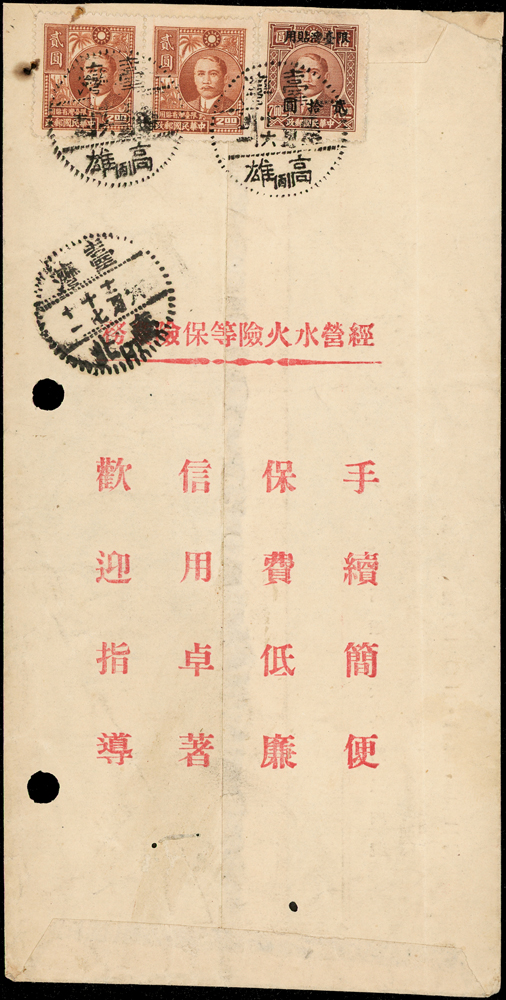 貳圓
貳圓
200
中華民國郵政
中華民國郵政
限臺灣貼用
貳拾圓
中華民國郵政
臺灣
高雄
臺灣
高雄
臺灣
經營水火險等保險 務
手續簡便
保費低廉
信用卓著
歡迎指導